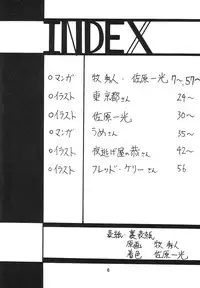 INDEX
○マンガ 牧 無人・佐原一光 7〜,57〜
○イラスト 東京都さん 24〜
○イラスト 佐原一光 30〜
○マンガ うめさん 35〜
○イラスト 夜逃げ屋の恭さん 42〜
○イラスト フレッド・ケリーさん 56
表紙・裏表紙
原画 牧 無人
着色 佐原一光
6